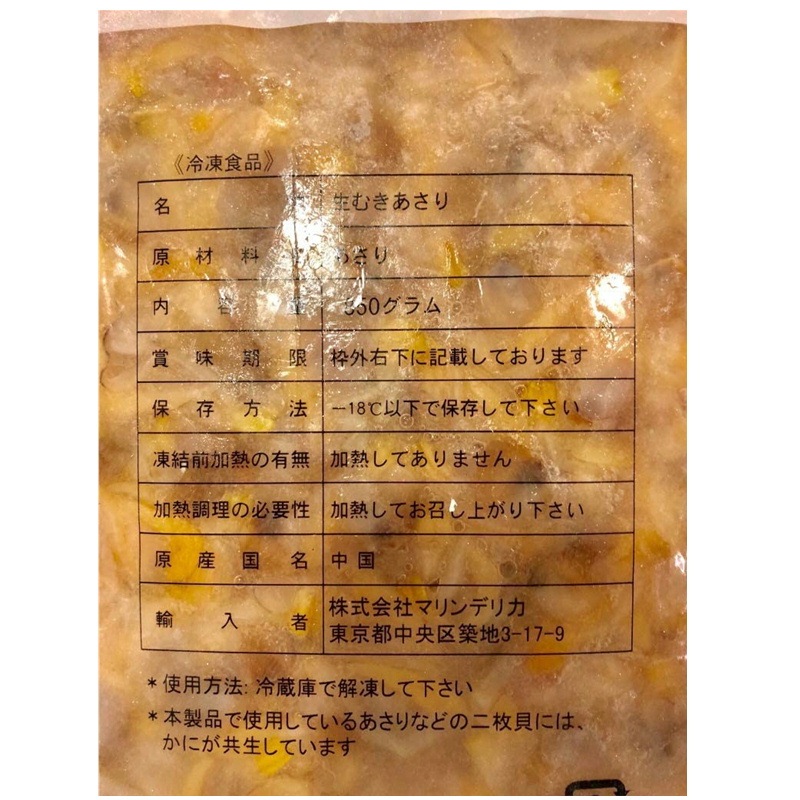 《冷凍食品》
名 生むきあさり
原材料 あさり
内容量 850グラム
賞味期限 枠外右下に記載しております
保存方法 −18℃以下で保存して下さい
凍結前加熱の有無 加熱してありません
加熱調理の必要性 加熱してお召し上がり下さい
原産国名 中国
輸入者 株式会社マリンデリカ
東京都中央区築地3-17-9
*使用方法:冷蔵庫で解凍して下さい
*本製品で使用しているあさりなどの二枚貝には、
かにが共生しています